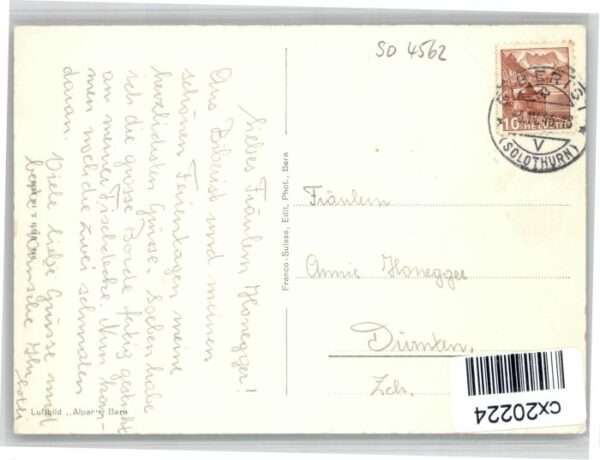 SO 4562
Liebes Fräulein Honegger!
Aus Biberist und meinen
schönen Ferientagen meine
herzlichsten Grüsse. Soeben habe
ich die grosse Borde fertig
an meiner Tischdecke. Nun kom-
men noch die zwei schmalen
daran.
Viele liebe Grüsse und
Franco-Suisse, Edit. Phot., Bern
Luftbild „Alpar", Bern
10 HELVETIA
(SOLOTHURN)
V
Fräulein
Annie Honegger
Dürnten.
Zch.
cx20224